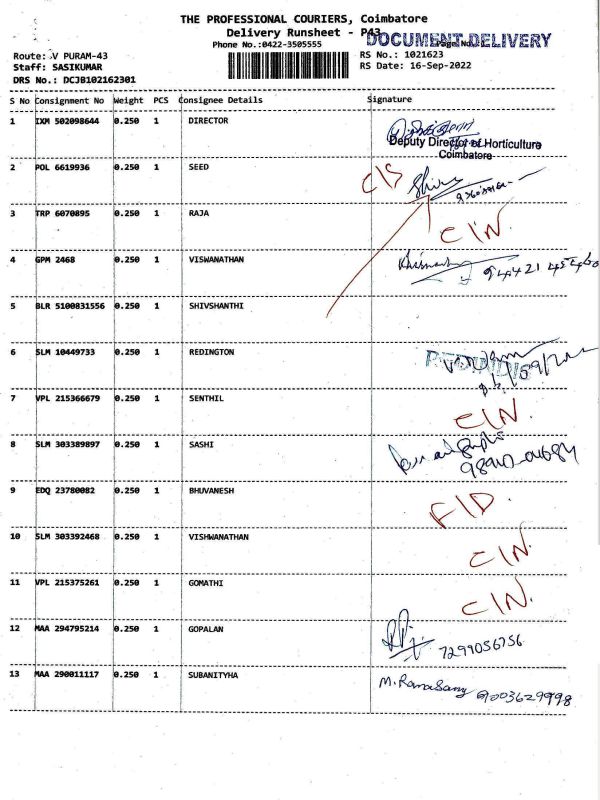 THE PROFESSIONAL COURIERS, Coimbatore
Delivery Runsheet - P43
DOCUMENT DELIVERY
Phone No.:0422-3505555
Page No.:
Route: V PURAM-43
RS No.: 1021623
Staff: SASIKUMAR
RS Date: 16-Sep-2022
DRS No.: DCJB102162301
S No Consignment No Weight PCS Consignee Details Signature
1 IXM 502098644 0.250 1 DIRECTOR
Deputy Director of Horticulture
Coimbatore
2 POL 6619936 0.250 1 SEED C/S
3 TRP 6070895 0.250 1 RAJA C/N.
4 GPM 2468 0.250 1 VISWANATHAN
5 BLR 5100831556 0.250 1 SHIVSHANTHI
6 SLM 10449733 0.250 1 REDINGTON
7 VPL 215366679 0.250 1 SENTHIL C/N.
8 SLM 303389897 0.250 1 SASHI
9 EDQ 23780082 0.250 1 BHUVANESH F/D.
10 SLM 303392468 0.250 1 VISHWANATHAN C/N.
11 VPL 215375261 0.250 1 GOMATHI C/N.
12 MAA 294795214 0.250 1 GOPALAN 7299056756
13 MAA 290011117 0.250 1 SUBANITYHA M. RamaSamy 9003629998